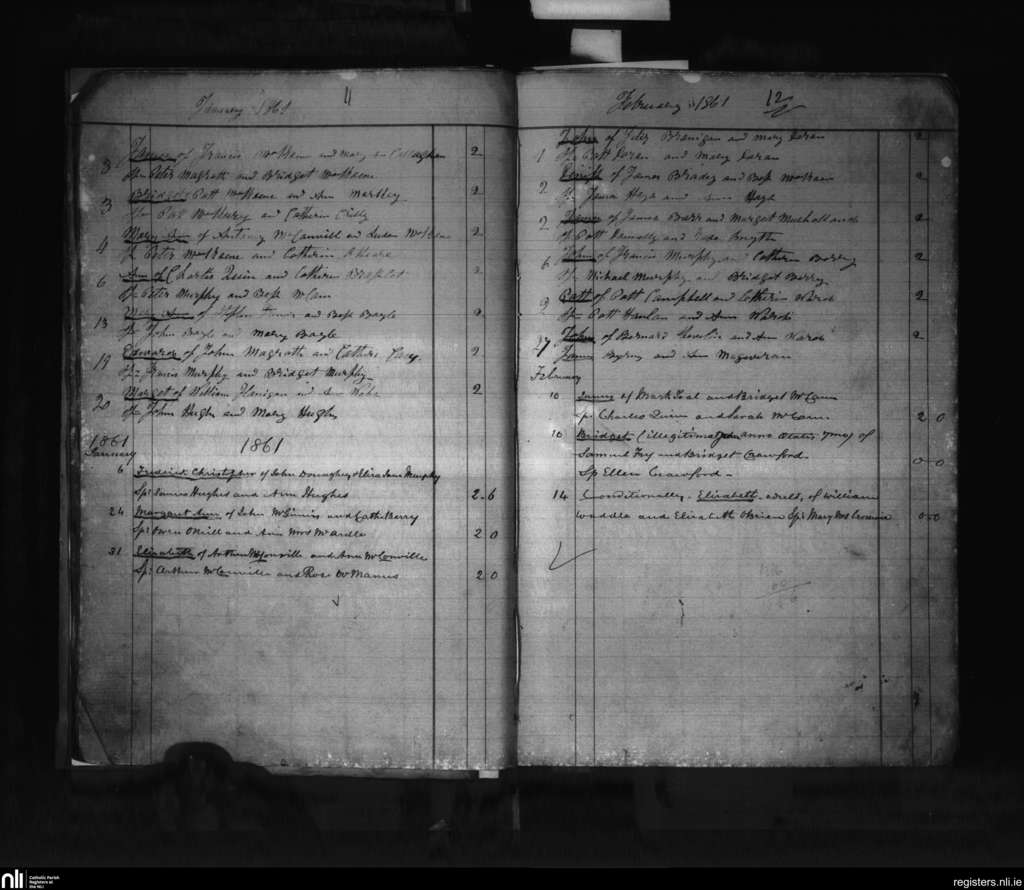 January 1861
11
3 James of Francis McKeane and Mary Callaghan 2
Sps Peter Magrath and Bridget McKeane
3 Bridget Patt McKeane and Ann 2
Sps Patt and Catherin
4 Mary Ann of Antony McConvill and McKeane 2
Sp Peter McKeane and Catherin
6 Ann of Charles Quin and Cathern 2
Sps Peter Murphy and Bess McCann
13 Mary Ann of and Bess Boyle 2
Sp John Boyle and Mary Boyle
19 Edward of John Magrath and Cathrin 2
Sps Francis Murphy and Bridget Murphy
20 Margot of William Flanigan and Ann 2
Sps John Hughs and Mary Hughs
1861 1861
January
6 Frederick Christopher of John Donaghy & Eliza Jane Murphy
Sps James Hughes and Ann Hughes 2-6
24 Margaret Ann of John McGinnis and Cath. Berry
Sps Owen ONeill and Ann McArdle 2 0
31 Elizabeth of Arthur McConville and Ann McConville
Sps Arthur McConville and Rose McManus 2 0
February 1861 12
1 John of Peter Branigan and Mary Coran 2
Sps Patt Coran and Mary Coran
2 of James Brady and Bess McKeane 2
Sps James Hage and Hage
2 James of James Barr and Margot Mulholland 2
Sps Patt Donnelly and Smyth
6 John of Francis Murphy and Cathern Berry 2
Sps Michael Murphy and Bridget Berry
9 Patt of Patt Campbell and Catherin Ward 2
Sps Patt Hanlon and Ann Ward
27 John of Bernard and Ann Ward 2
James Byrne and Ann Magoveran
February
10 of Mark Toal and Bridget McCann
Sps Charles Quinn and Sarah McCann 2 0
10 Bridget (illegitimate) of
Samuel Fry and Bridget Crawford 0-0
Sp Ellen Crawford
14 Conditionally. Elizabeth adult, of William
Waddle and Elizabeth OBrien Sp: Mary 0-0
nli
Catholic Parish
Registers at
the NLI
registers.nli.ie